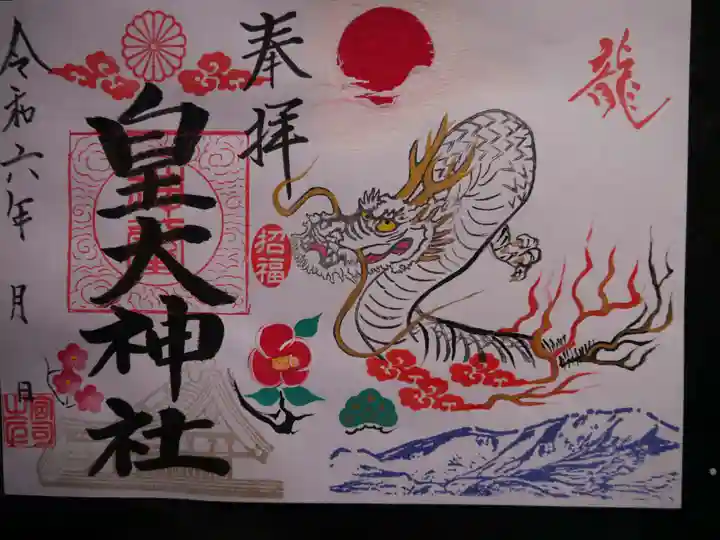 龍
奉拝
皇大神社
招福
令和六年 月 日